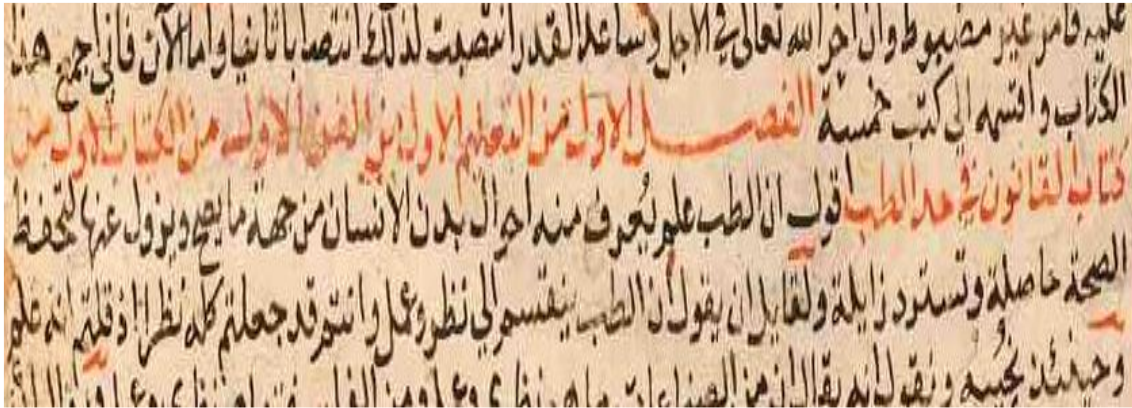 عليه فامر غير مضبوط وان اخر الله تعالى في الاجل وساعد القدر انتصبت لذلك انتصابا ثانيا واما الآن فاني اجمع هذا
الكتاب واقسمه الى كتب خمسة الفصل الاول من التعليم الاول من الفن الاول من الكتاب الاول من
كتاب القانون في حد الطب اقول ان الطب علم يُعرف منه احوال بدن الانسان من جهة ما يصح ويزول عنها لتحفظ
الصحة حاصلة وتسترد زايلة ولقايل ان يقول ان الطب ينقسم الي نظر وعمل وانتم قد جعلتم كله نظرا اذ قلتم انه علم
وحينئذ نجيبه ونقول انه يقال ان من الصناعات ما هو نظري وعملي ومن